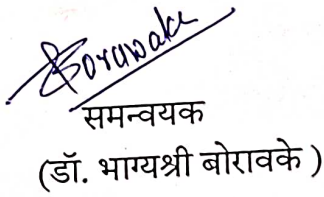 Borawake
समन्वयक
(डॉ. भाग्यश्री बोरावके )